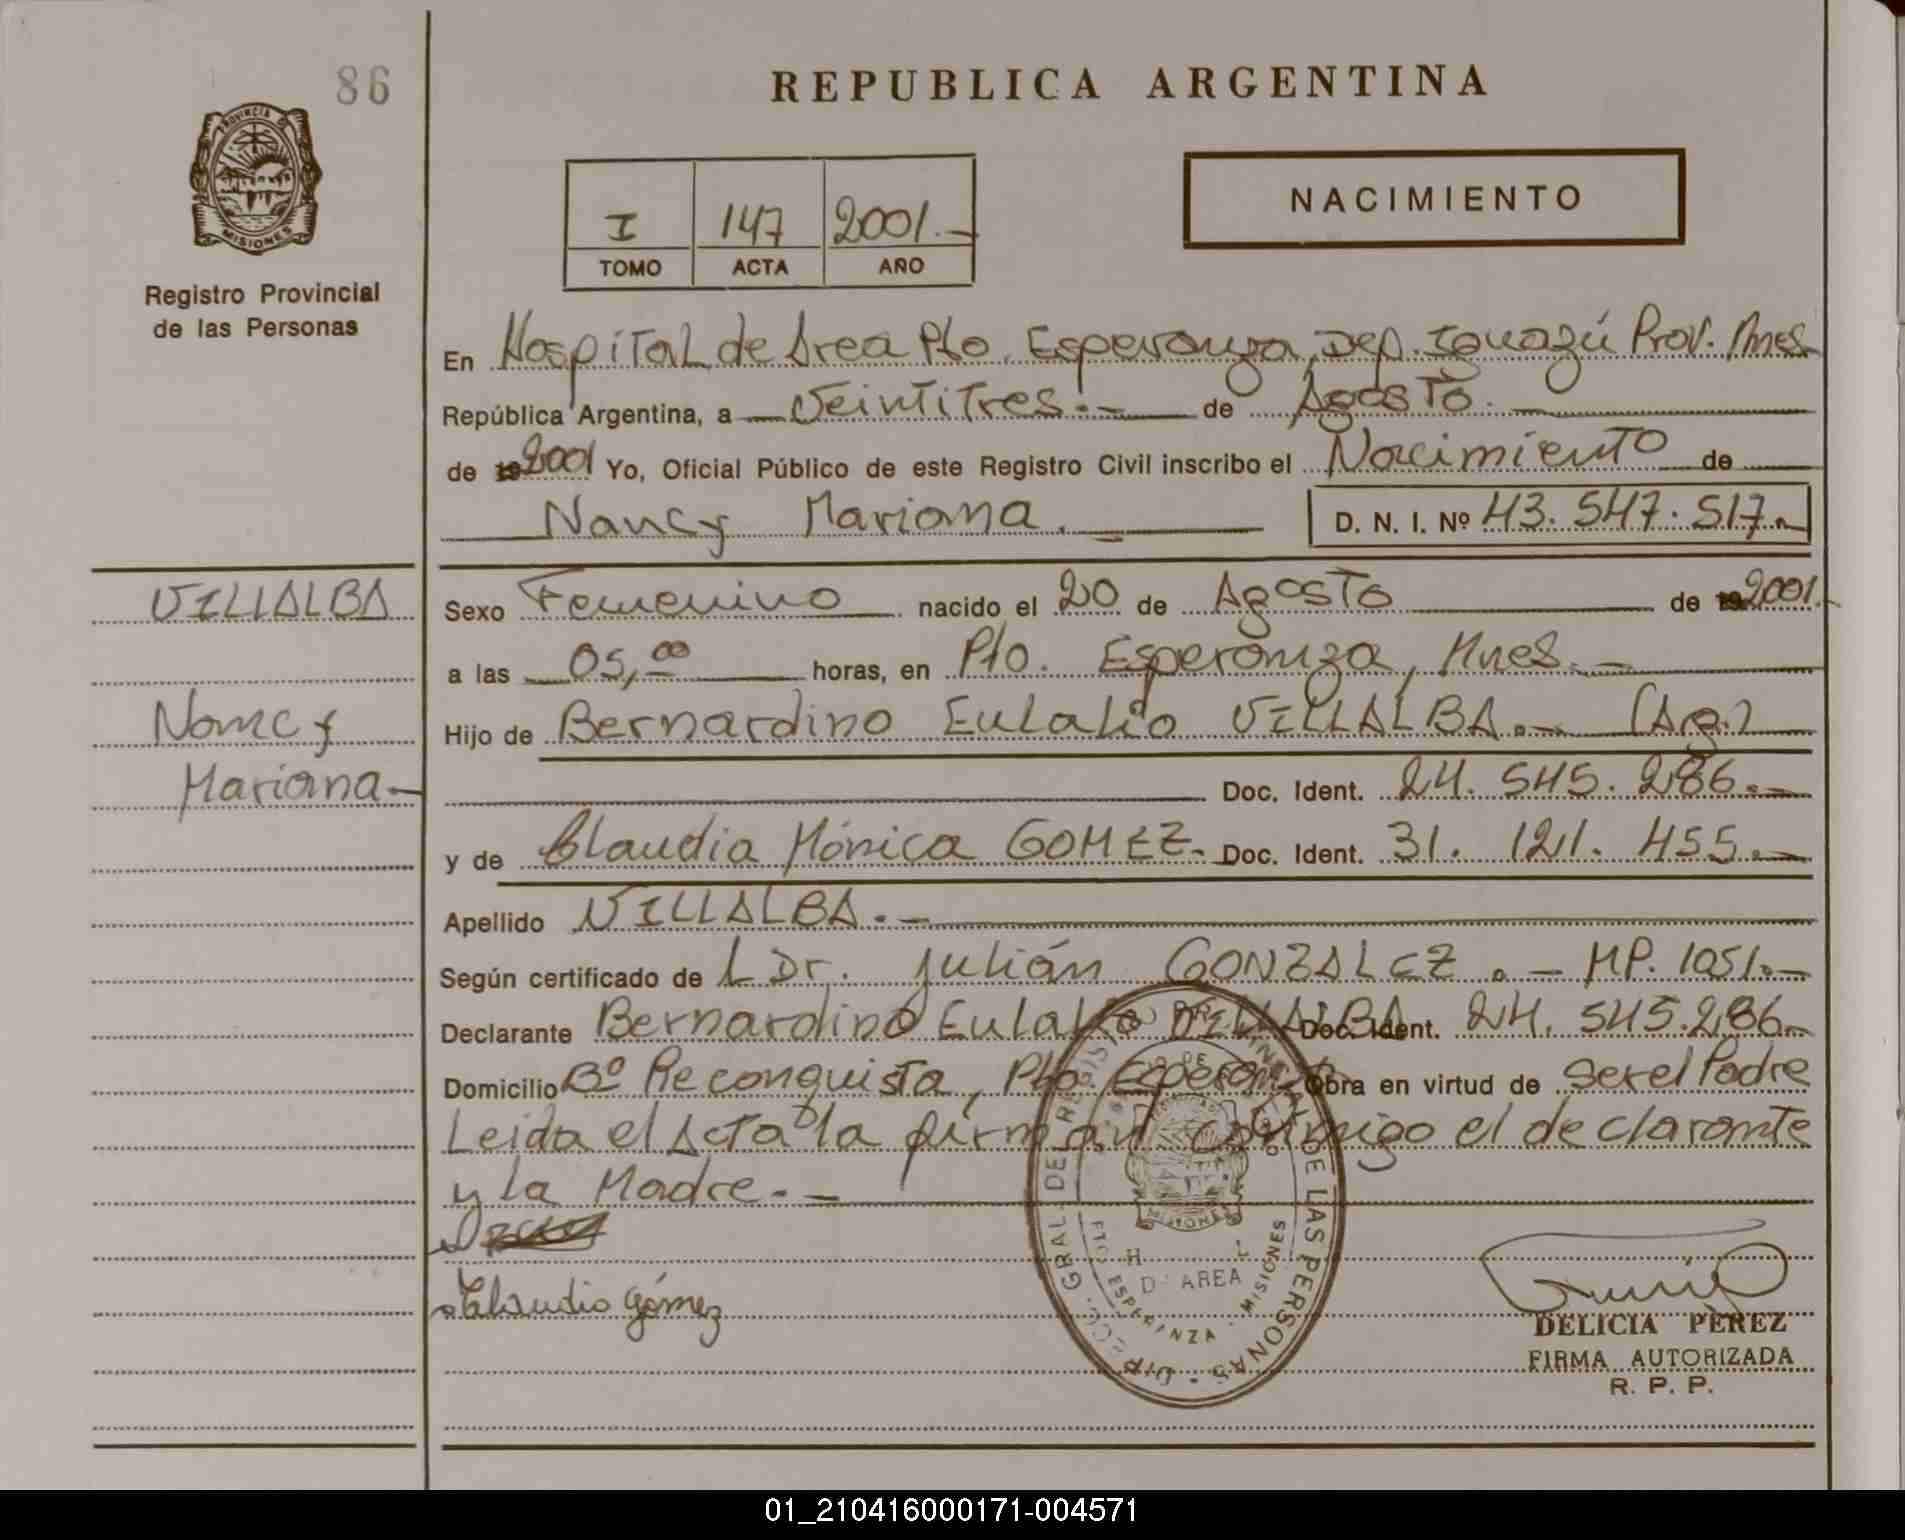 86
PROVINCIA DE
MISIONES
Registro Provincial
de las Personas
VILLALBA
Nancy
Mariana
REPUBLICA ARGENTINA
I 147 2001.-
TOMO ACTA AÑO
NACIMIENTO
En Hospital de Area Pto. Esperanza, Dep. Iguazú Prov. Mnes.
República Argentina, a Veintitres.- de Agosto.
de 19 2001 Yo, Oficial Público de este Registro Civil inscribo el Nacimiento de
Nancy Mariana. D. N. I. Nº 43.547.517.-
Sexo Femenino nacido el 20 de Agosto de 19 2001.-
a las 05,00 horas, en Pto. Esperanza, Mnes.-
Hijo de Bernardino Eulalio VILLALBA.- (Arg.)
Doc. Ident. 24.545.286.-
y de Claudia Mónica GOMEZ.- Doc. Ident. 31.121.455.-
Apellido VILLALBA.-
Según certificado de L Dr. Julián GONZALEZ.- MP. 1051.-
Declarante Bernardino Eulalio VILLALBA Doc. Ident. 24.545.286.-
Domicilio Bº Reconquista, Pto. Esperanza Obra en virtud de ser el Padre
Leida el Acta la firman conmigo el declarante
y la Madre.-
Claudia Gómez
DIRECC. GRAL. DEL REGISTRO PROVINCIAL DE LAS PERSONAS
MISIONES
D. AREA
PTO. ESPERANZA - MISIONES
DELICIA PEREZ
FIRMA AUTORIZADA
R. P. P.
01_210416000171-004571